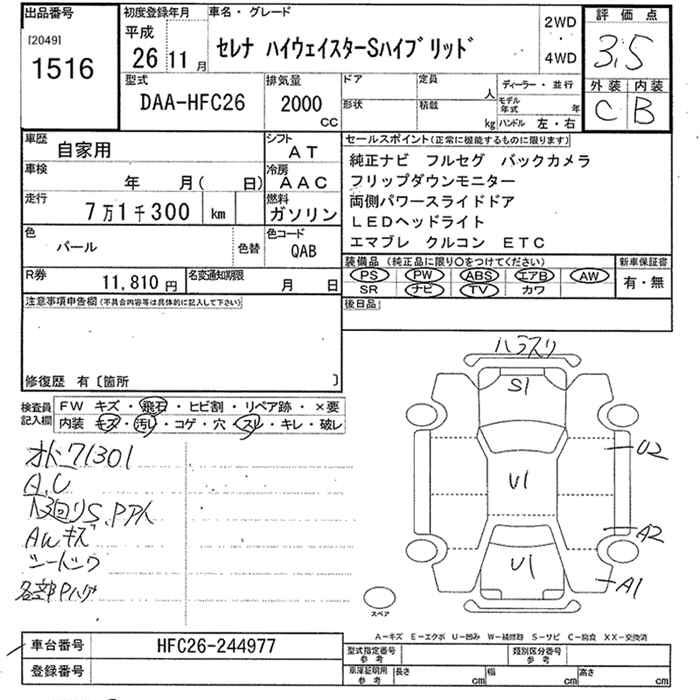 出品番号
[2049]
1516
初度登録年月
平成
26 11 月
車名・グレード
セレナ ハイウェイスターSハイブリッド
2WD
・
4WD
評価点
3.5
外装 内装
C B
型式
DAA-HFC26
排気量
2000
CC
ドア
形状
定員
人
積載
kg
ディーラー・並行
モデル年式 年
ハンドル 左・右
車歴
自家用
シフト
AT
車検
年 月( 日)
冷房
AAC
走行
7万1千300 km
燃料
ガソリン
色
パール
色替
色コード
QAB
R券
11,810 円
名変通知期限
月 日
セールスポイント(正常に機能するものに限ります)
純正ナビ フルセグ バックカメラ
フリップダウンモニター
両側パワースライドドア
LEDヘッドライト
エマブレ クルコン ETC
装備品(純正品に限り○をつけてください)
PS PW ABS エアB AW
SR ナビ TV カワ
新車保証書
有・無
後日品
注意事項申告欄(不具合内容等は具体的に記入して下さい)
修復歴 有〔箇所 〕
検査員記入欄
FW キズ・飛石・ヒビ割・リペア跡・×要
内装 キズ・汚れ・コゲ・穴・スレ・キレ・破レ
71301
A,U
AWキズ
ハラスリ
S1
U1
U1
U2
A2
A1
スペア
A-キズ E-エクボ U-凹み W-補修跡 S-サビ C-腐食 XX-交換済
車台番号
HFC26-244977
登録番号
型式指定番号参考
類別区分番号参考
車庫証明用参考
長さ cm
幅 cm
高さ cm